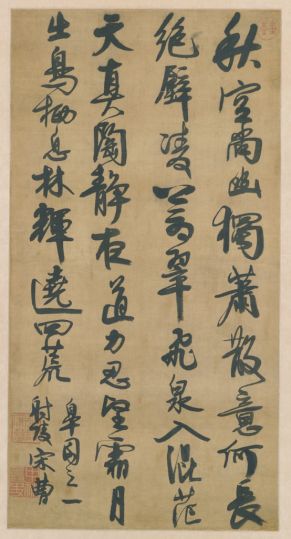 秋空尚幽獨蕭散意何長
絕壁凌蒼翠飛泉入混茫
天真陶靜道力忍堅霜月
出鳥栖息林輝遶四荒
阜園之一
射陵宋曹